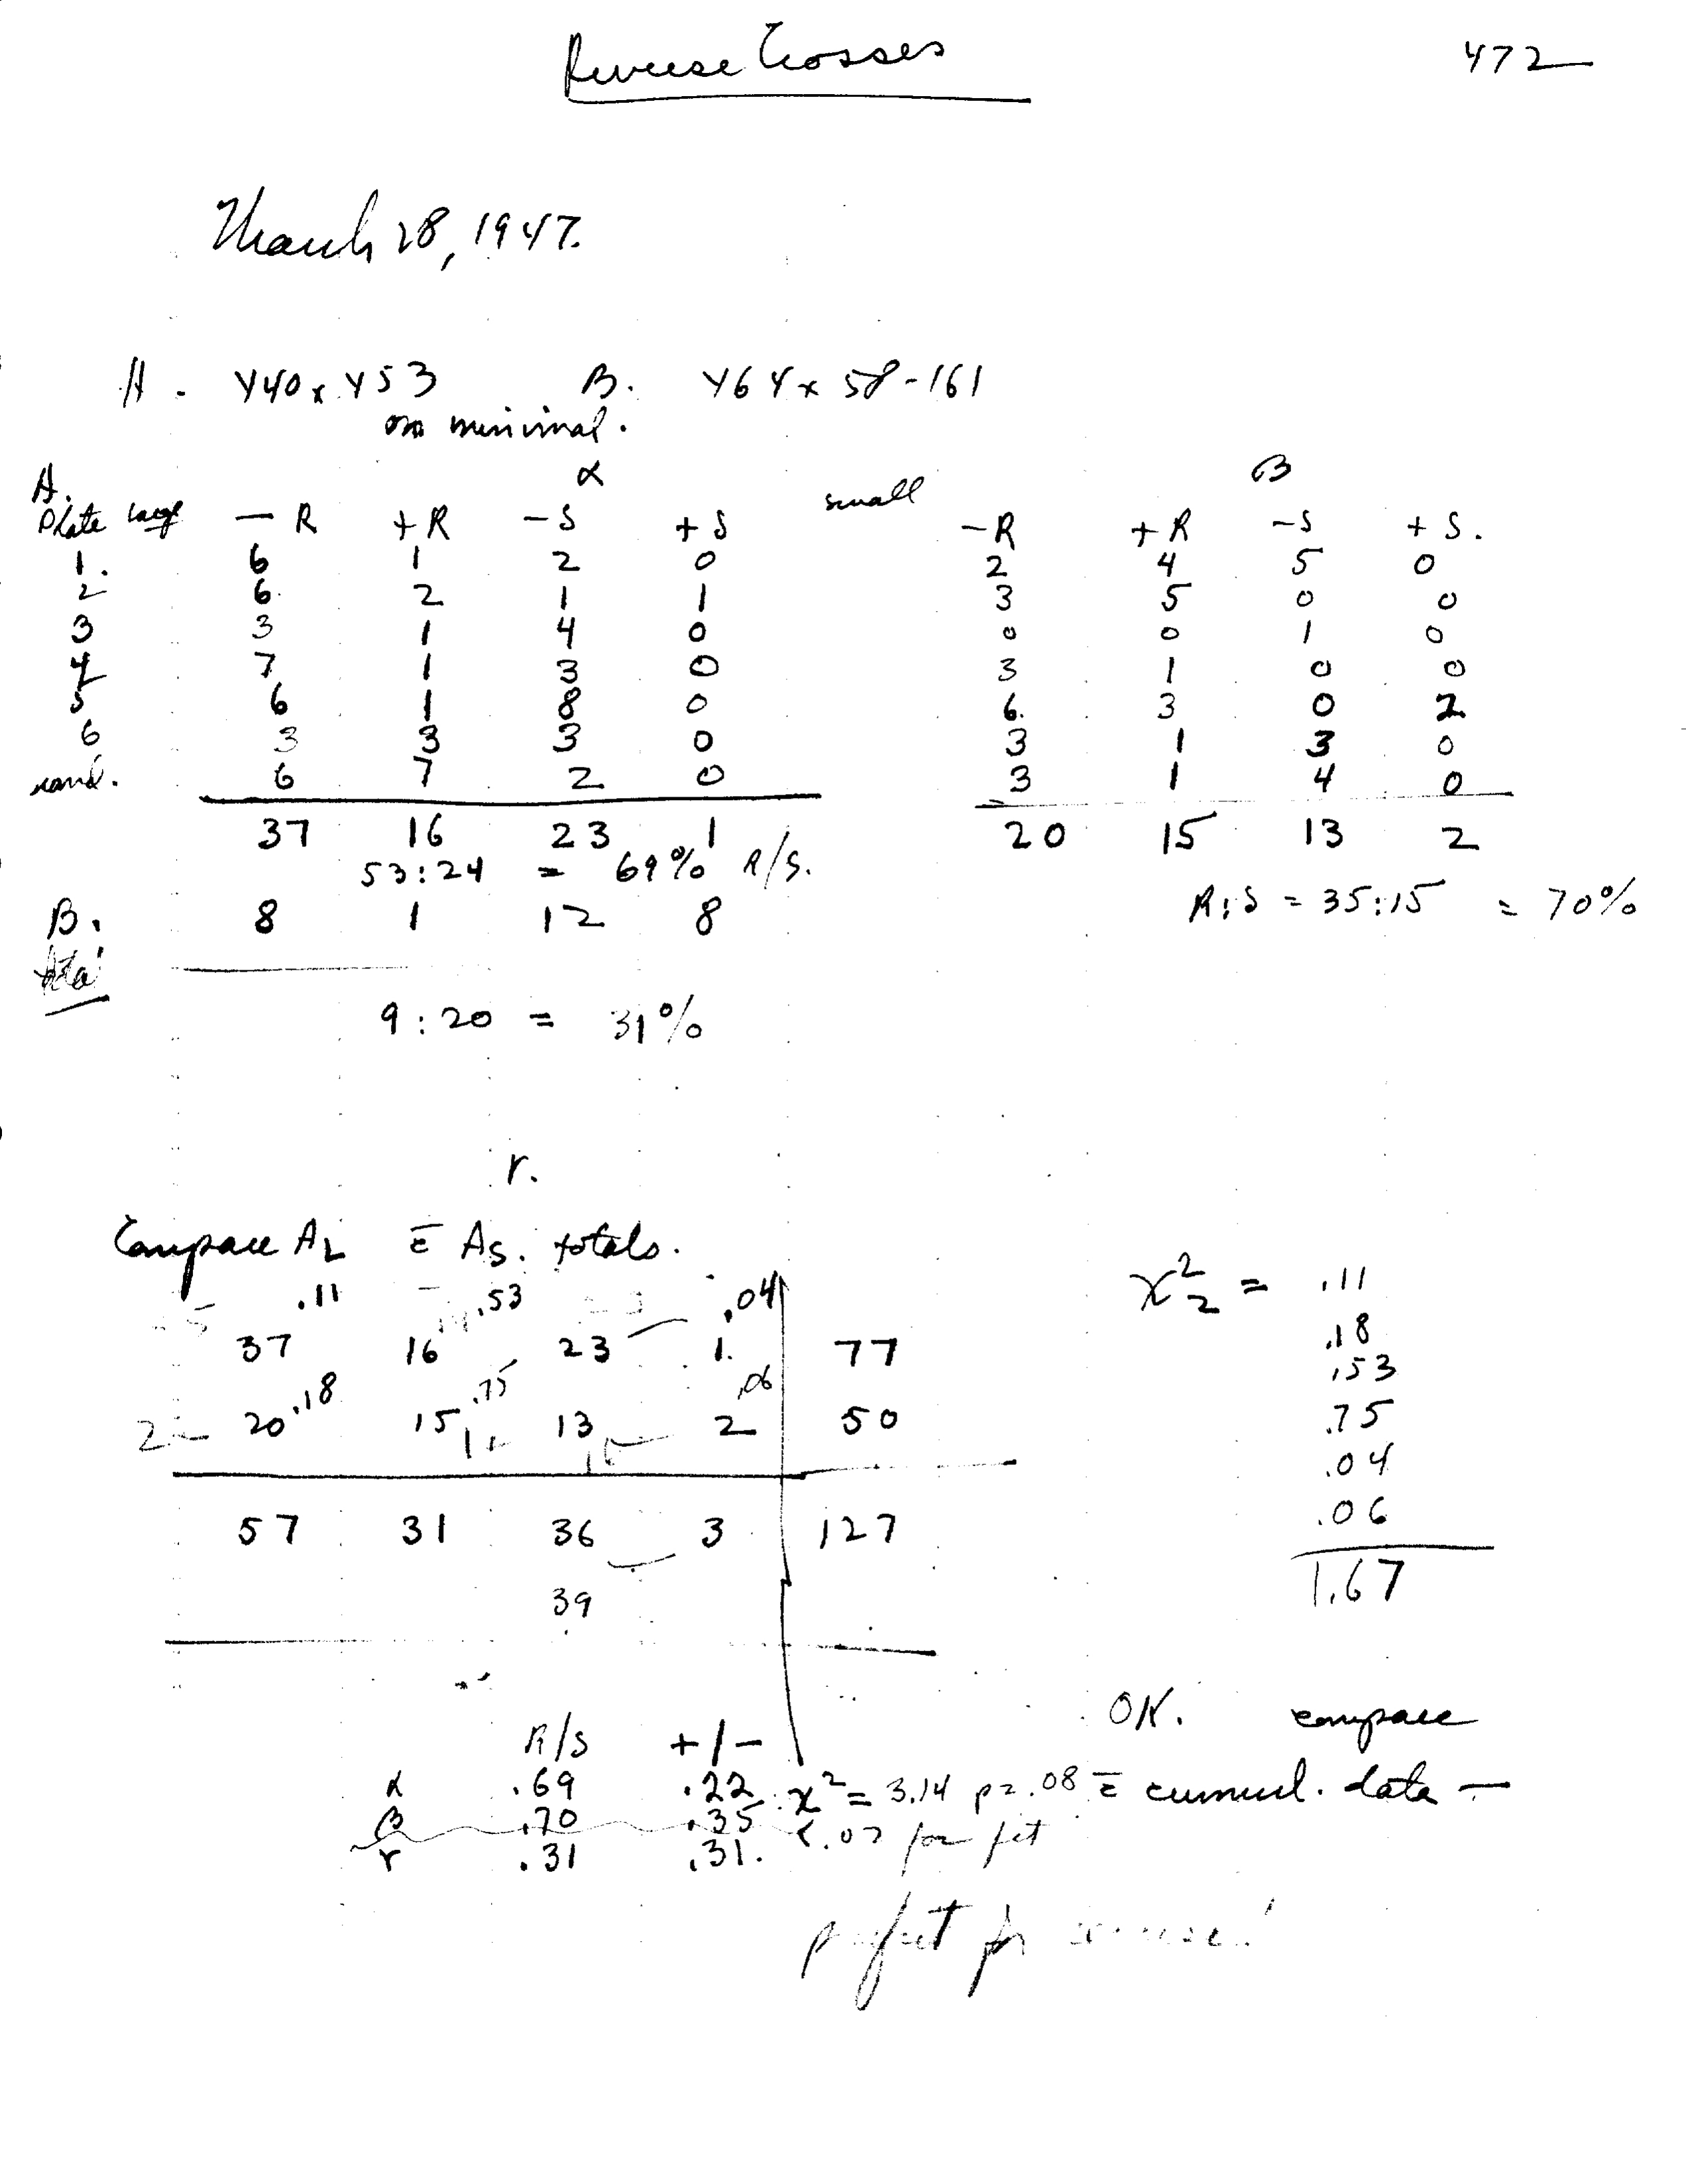 Reverse Crosses 472
March 28, 1947.
A. Y40 x Y53 B. Y64 x 58-161
on minimal.
A. α β
Plate large − R + R − S + S small − R + R − S + S.
1. 6 1 2 0 2 4 5 0
2 6 2 1 1 3 5 0 0
3 3 1 4 0 0 0 1 0
4 7 1 3 0 3 1 0 0
5 6 1 8 0 6 3 0 2
6 3 3 3 0 3 1 3 0
rand. 6 7 2 0 3 1 4 0
37 16 23 1 20 15 13 2
53:24 = 69% R/S. R:S = 35:15 = 70%
B. 8 1 12 8
total
9:20 = 31%
r.
Compare AL c̄ As. totals.
.11 .53 .04
37 16 23 1. 77
.18 .75 .06
20 15 13 2 50
57 31 36 3 127
39
χ²₂ = .11
.18
.53
.75
.04
.06
1.67
OK. compare
R/S +/−
α .69 .22 χ² = 3.14 p = .08 c̄ cumul. data —
β .70 .35 for fit
r .31 .31.
perfect for